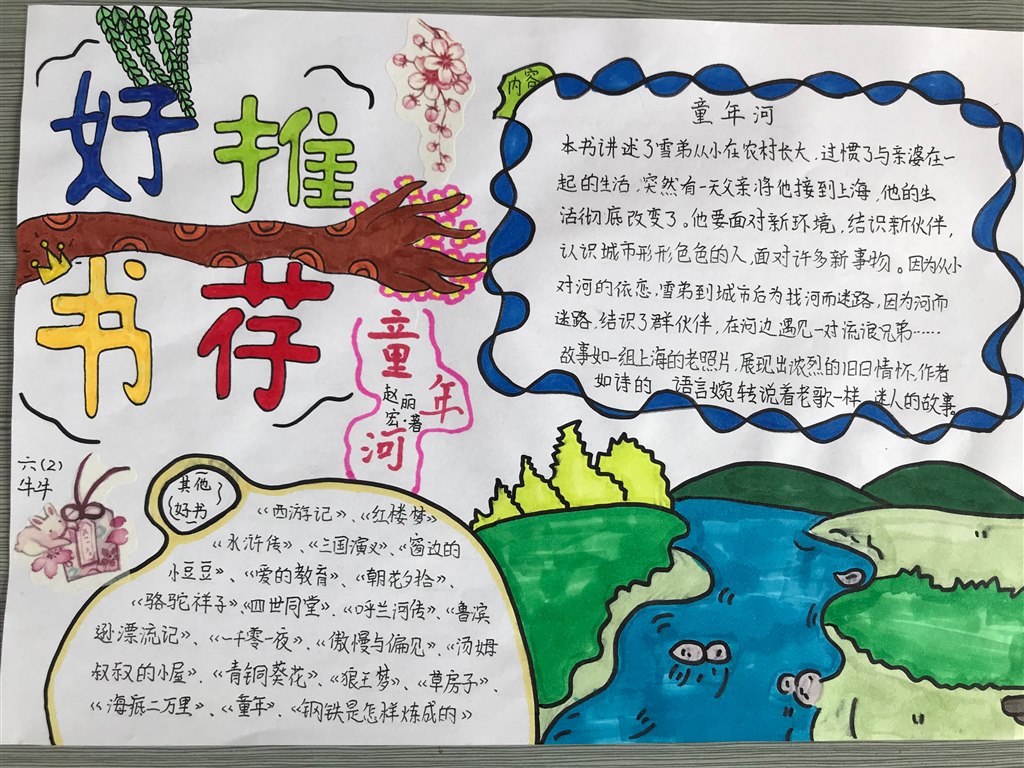 好推
书荐
童年河
赵丽宏·著
六(2)
牛牛
内容
童年河
本书讲述了雪弟从小在农村长大,过惯了与亲婆在一
起的生活,突然有一天父亲将他接到上海,他的生
活彻底改变了。他要面对新环境,结识新伙伴,
认识城市形形色色的人,面对许多新事物。因为从小
对河的依恋,雪弟到城市后为找河而迷路,因为河而
迷路,结识了群伙伴,在河边遇见一对流浪兄弟……
故事如一组上海的老照片,展现出浓烈的旧日情怀,作者
如诗的 语言婉转说着老歌一样 迷人的故事。
其他
好书
《西游记》、《红楼梦》
《水浒传》、《三国演义》、《窗边的
小豆豆》、《爱的教育》、《朝花夕拾》、
《骆驼祥子》、《四世同堂》、《呼兰河传》、《鲁滨
逊漂流记》、《一千零一夜》、《傲慢与偏见》、《汤姆
叔叔的小屋》、《青铜葵花》、《狼王梦》、《草房子》、
《海底二万里》、《童年》、《钢铁是怎样炼成的》